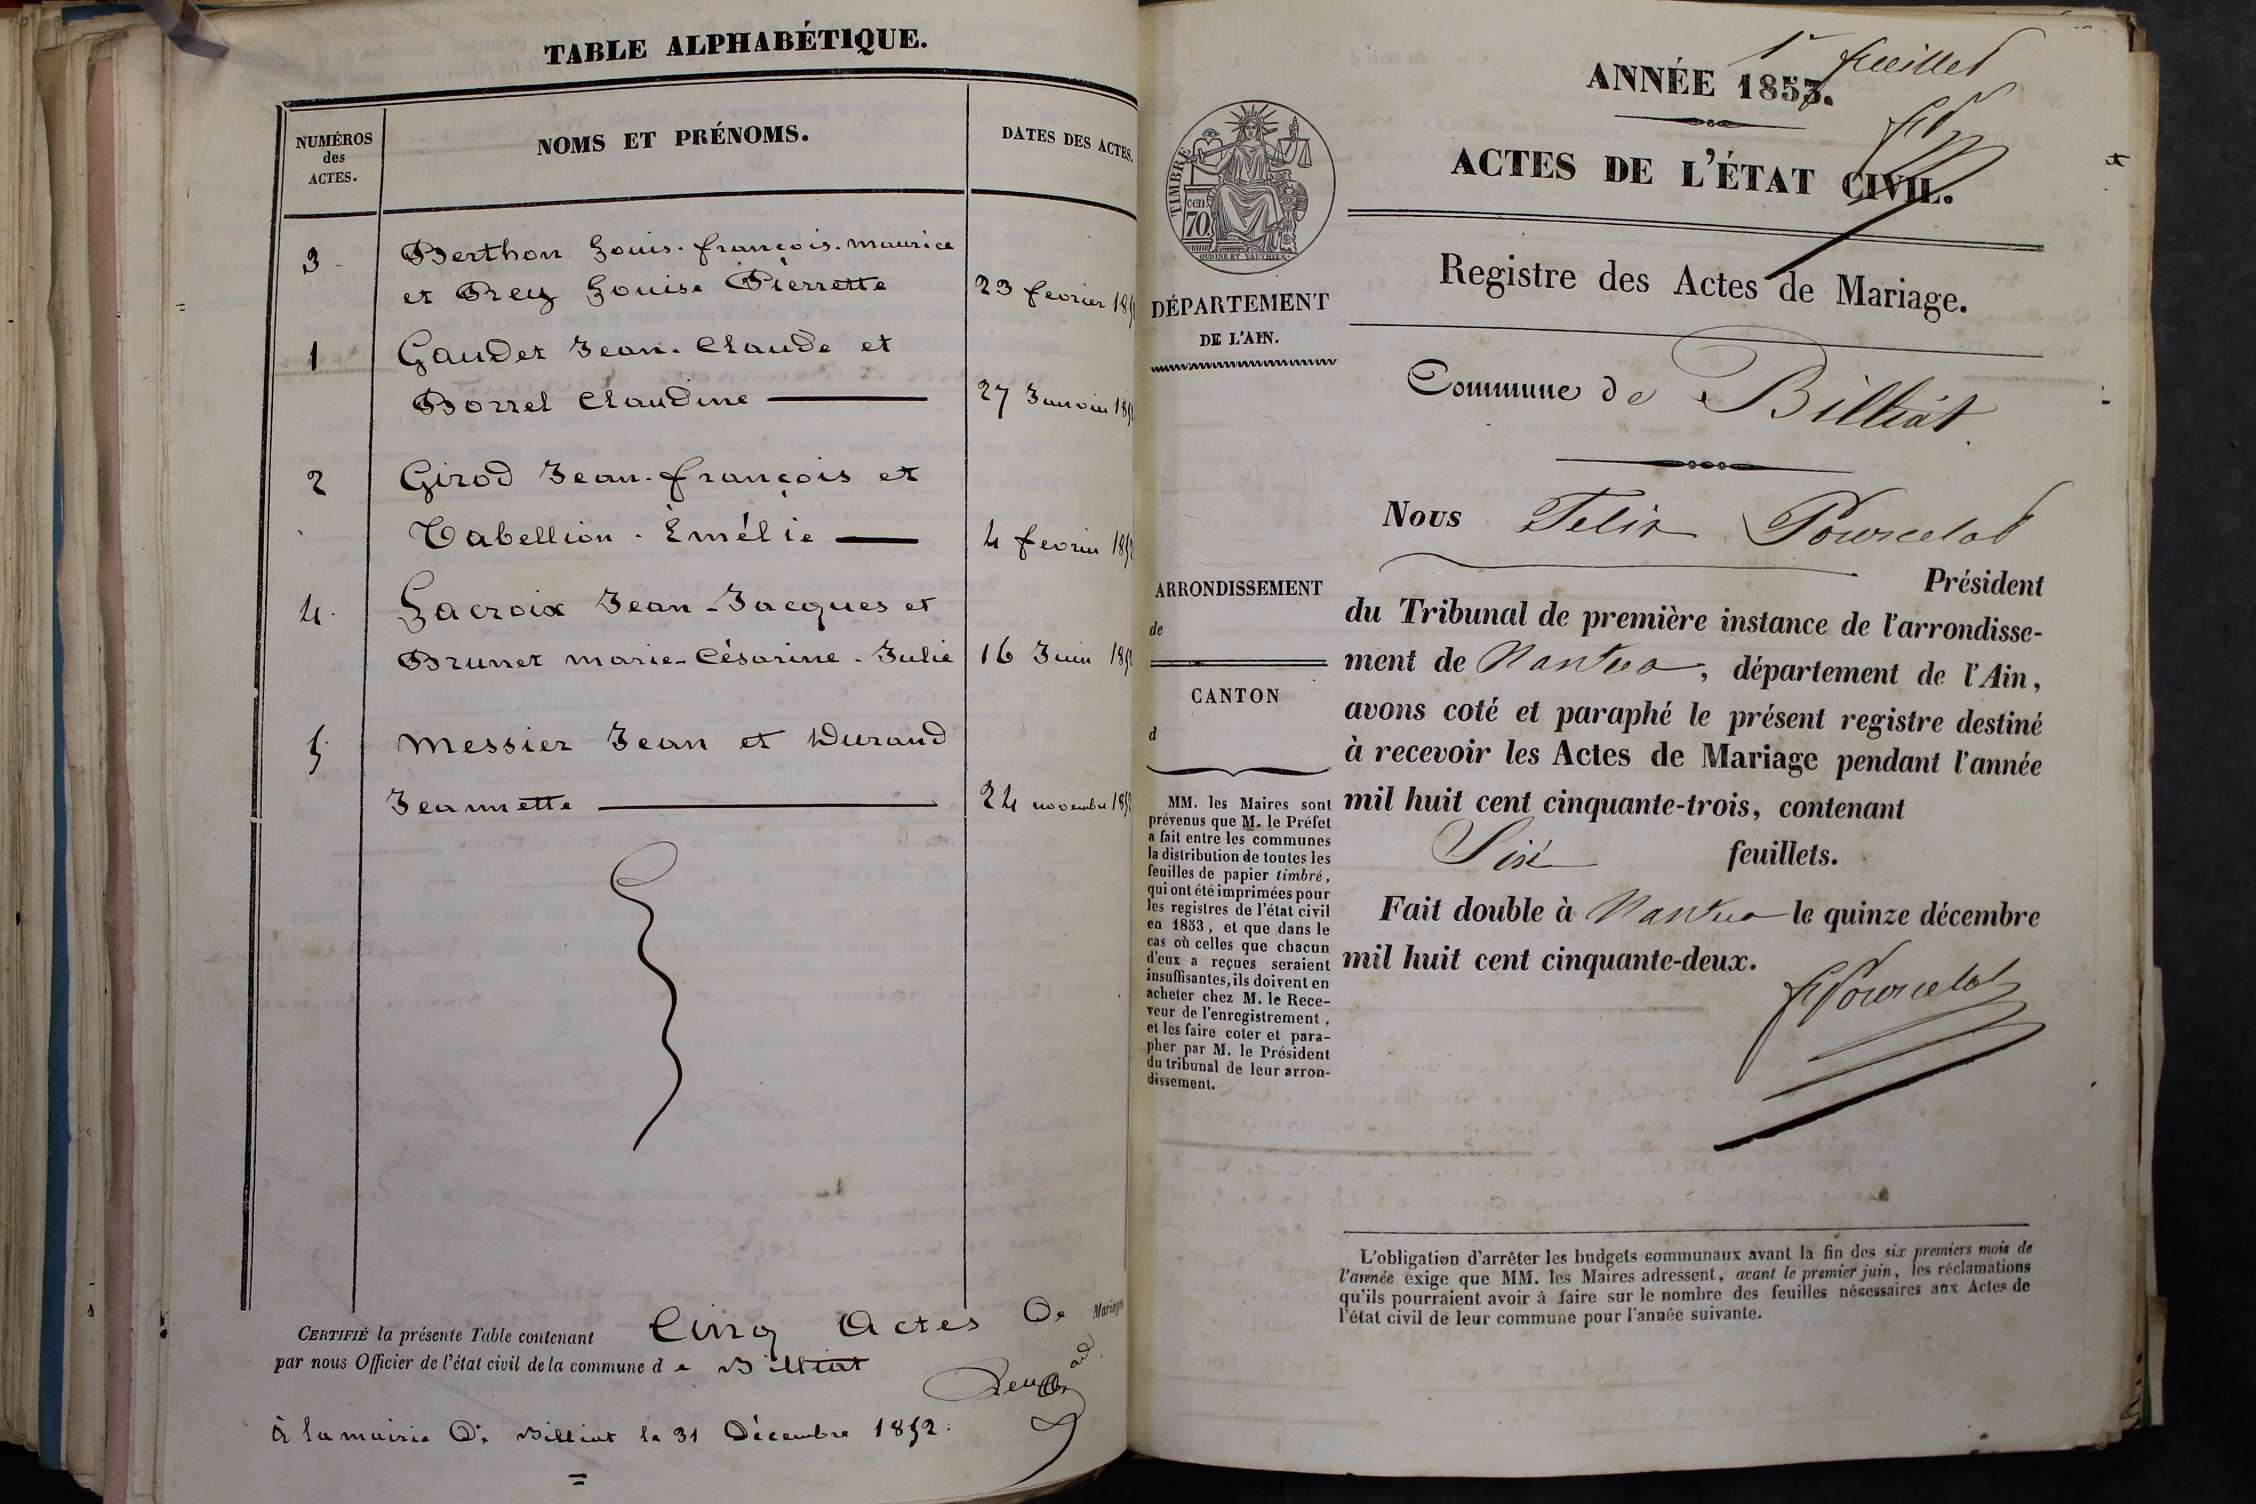 TABLE ALPHABÉTIQUE.
NUMÉROS
des
ACTES.
NOMS ET PRÉNOMS.
DATES DES ACTES.
3
Berthon Louis. françois. maurice
et Rey Louise Pièrrette
23 fevrier 1852
1
Gaudet Jean. Claude et
Borrel Claudine
27 Janvier 1852
2
Girod Jean. françois et
Tabellion. Émélie
4 fevrier 1852
4.
Lacroix Jean-Jacques et
Brunet marie-Césarine. Julie
16 Juin 1852
5.
Messier Jean et Durand
Jeannette
24 novembre 1852
CERTIFIÉ la présente Table contenant Cinq Actes de Mariages
par nous Officier de l'état civil de la commune de Billiat
À la mairie de Billiat le 31 Décembre 1852.
1er feuillet
ANNÉE 1853.
ACTES DE L'ÉTAT CIVIL.
TIMBRE
70 cen.
OUDINÉ ET VAUTHIER
Registre des Actes de Mariage.
DÉPARTEMENT
DE L'AIN.
Commune de Billiat.
Nous Felix Pourcelot
Président
ARRONDISSEMENT
de
CANTON
d
du Tribunal de première instance de l'arrondisse-
ment de Nantua, département de l'Ain,
avons coté et paraphé le présent registre destiné
à recevoir les Actes de Mariage pendant l'année
mil huit cent cinquante-trois, contenant
Six feuillets.
Fait double à Nantua le quinze décembre
mil huit cent cinquante-deux.
F Pourcelot
MM. les Maires sont
prévenus que M. le Préfet
a fait entre les communes
la distribution de toutes les
feuilles de papier timbré,
qui ont été imprimées pour
les registres de l'état civil
en 1853, et que dans le
cas où celles que chacun
d'eux a reçues seraient
insuffisantes, ils doivent en
acheter chez M. le Rece-
veur de l'enregistrement,
et les faire coter et para-
pher par M. le Président
du tribunal de leur arron-
dissement.
L'obligation d'arrêter les budgets communaux avant la fin des six premiers mois de
l'année exige que MM. les Maires adressent, avant le premier juin, les réclamations
qu'ils pourraient avoir à faire sur le nombre des feuilles nécessaires aux Actes de
l'état civil de leur commune pour l'année suivante.